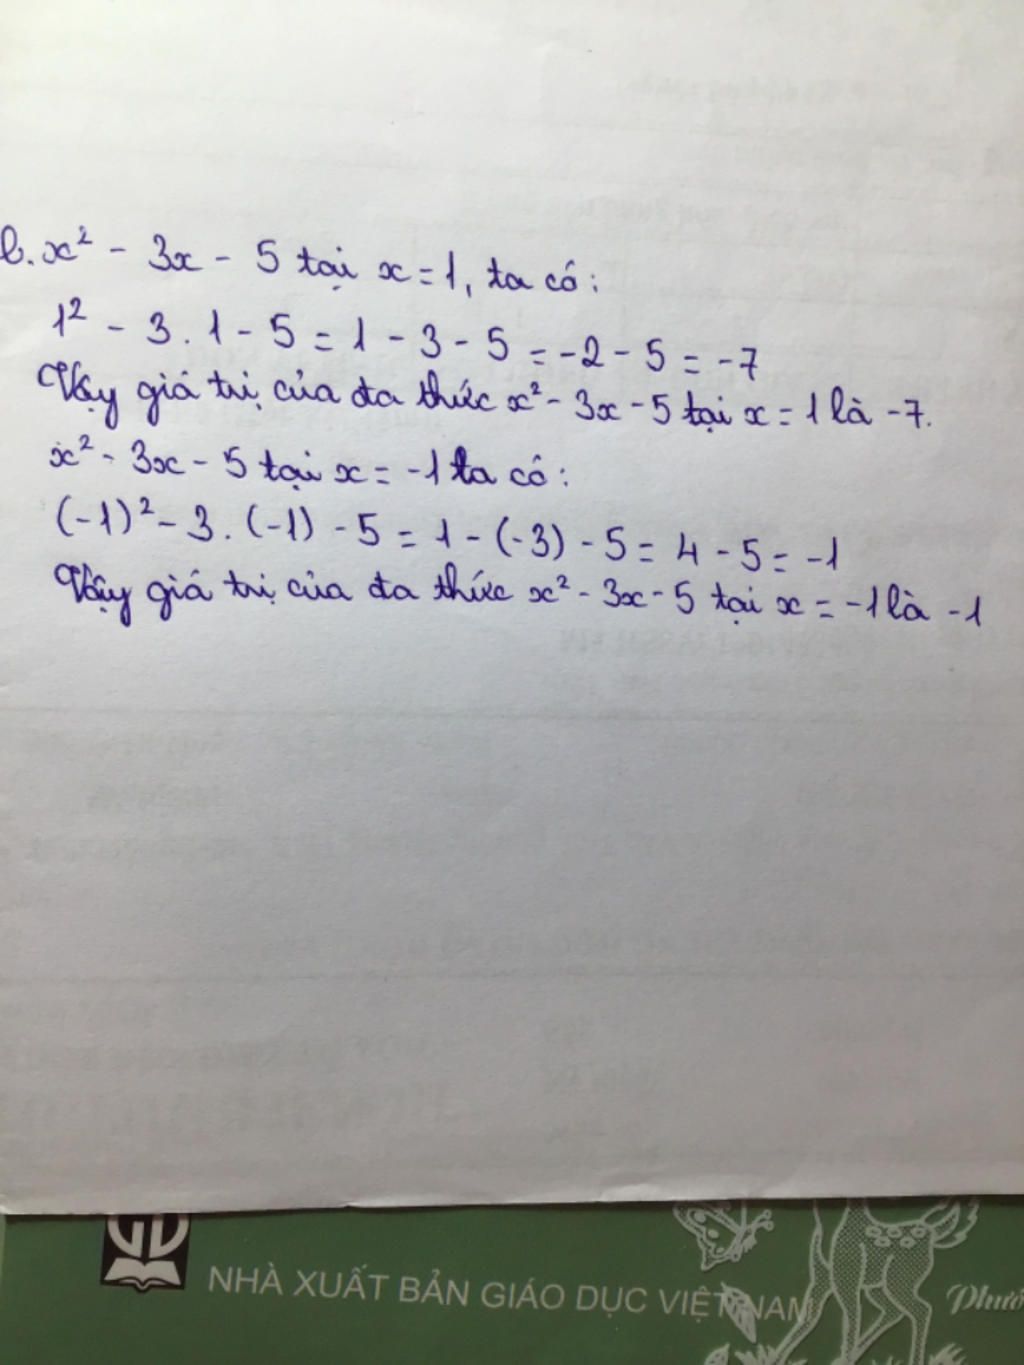 b. x² - 3x - 5 tại x = 1, ta có:
1² - 3 . 1 - 5 = 1 - 3 - 5 = -2 - 5 = -7
Vậy giá trị của đa thức x² - 3x - 5 tại x = 1 là -7.
x² - 3x - 5 tại x = -1 ta có:
(-1)² - 3 . (-1) - 5 = 1 - (-3) - 5 = 4 - 5 = -1
Vậy giá trị của đa thức x² - 3x - 5 tại x = -1 là -1
GD
NHÀ XUẤT BẢN GIÁO DỤC VIỆT NAM